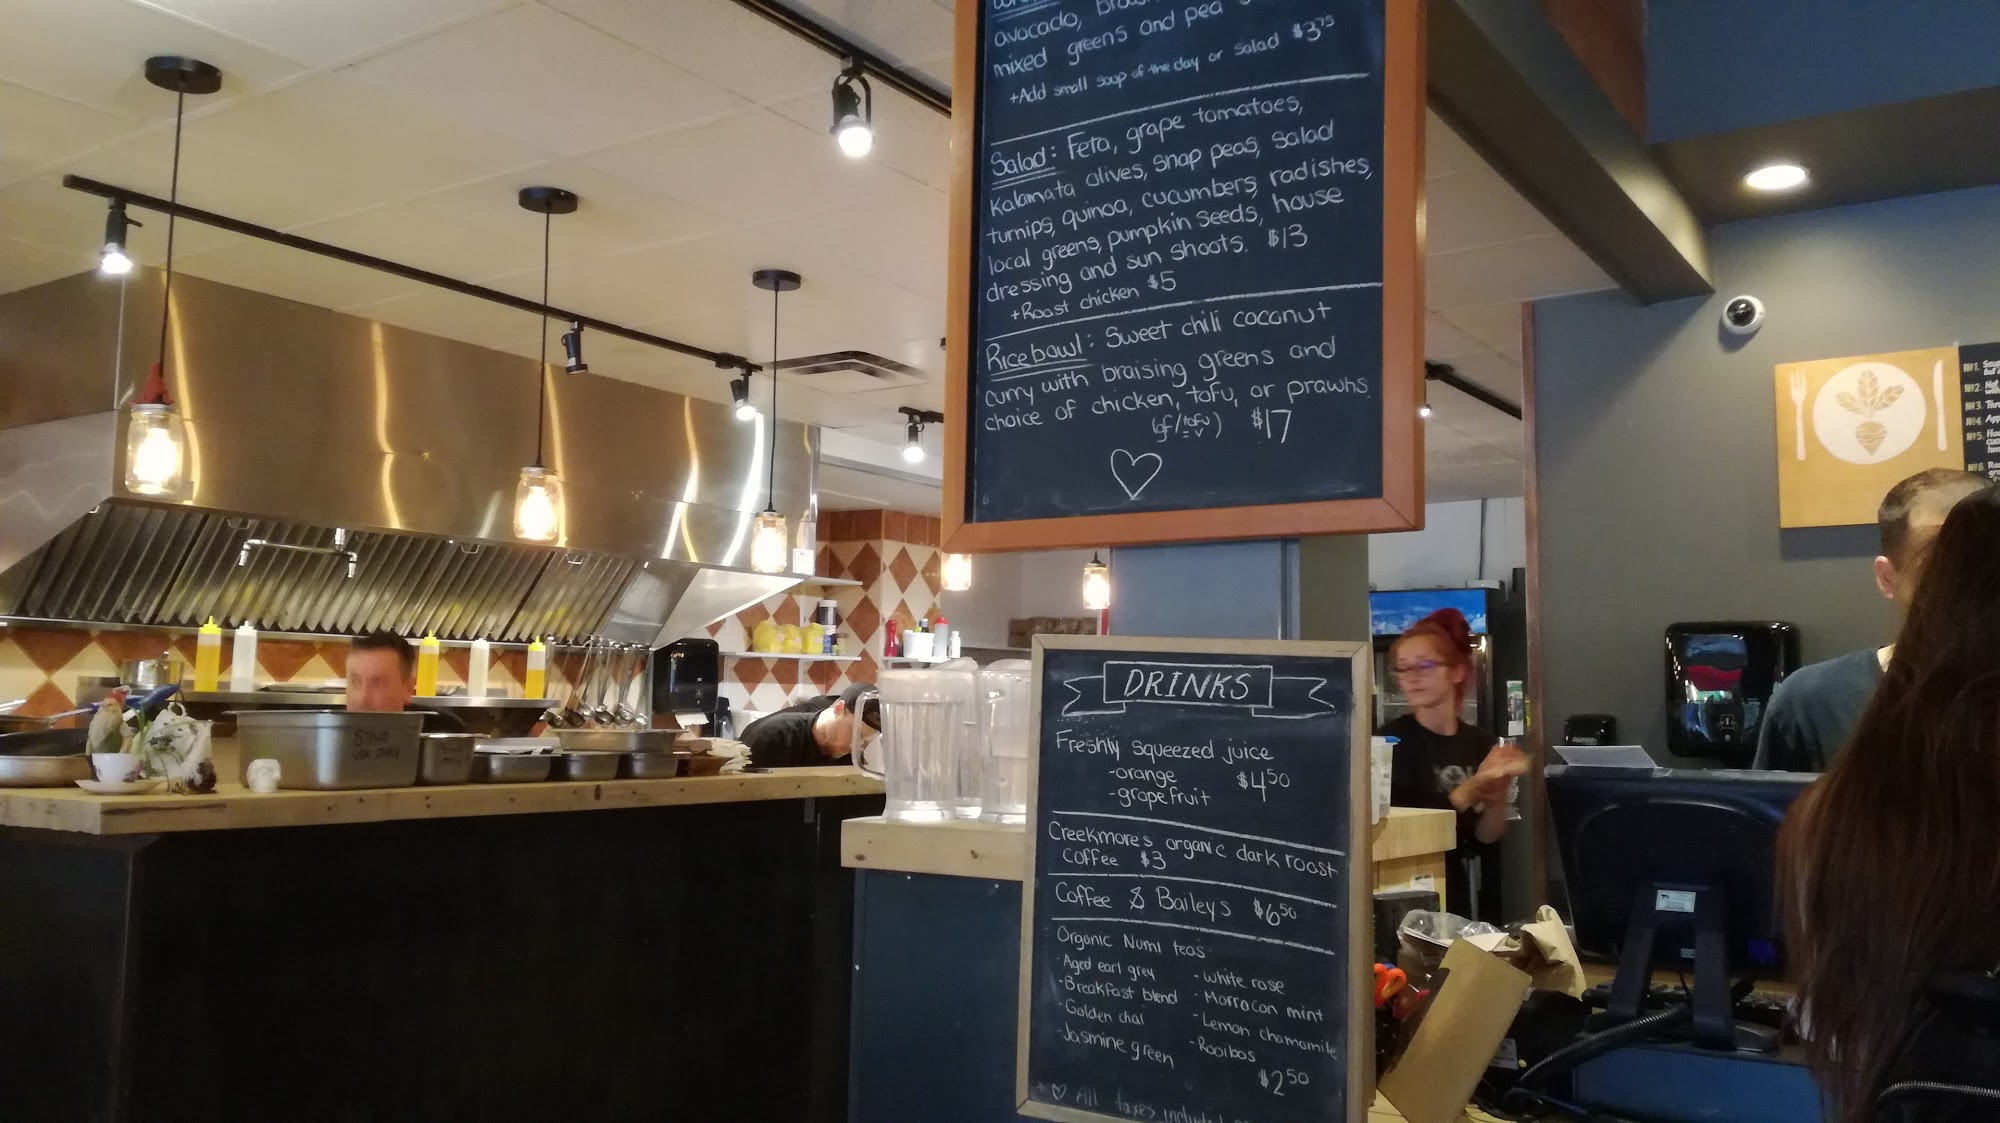 avocado,
mixed greens and pea
+Add small soup of the day or salad $3.75
Salad: Feta, grape tomatoes,
kalamata olives, snap peas, salad
turnips, quinoa, cucumbers, radishes,
local greens, pumpkin seeds, house
dressing and sun shoots. $13
+Roast chicken $5
Rice bowl: Sweet chili coconut
curry with braising greens and
choice of chicken, tofu, or prawns.
(gf/tofu v) $17
DRINKS
Freshly squeezed juice
-orange $4.50
-grapefruit
Creekmores organic dark roast
coffee $3
Coffee & Baileys $6.50
Organic Numi teas:
·Aged earl grey - white rose
-Breakfast blend - Morrocan mint
·Golden chai - Lemon chamomile
·Jasmine green - Rooibos
$2.50
All taxes included
Nº1.
Nº2.
Nº3.
Nº4.
Nº5.
Nº6.